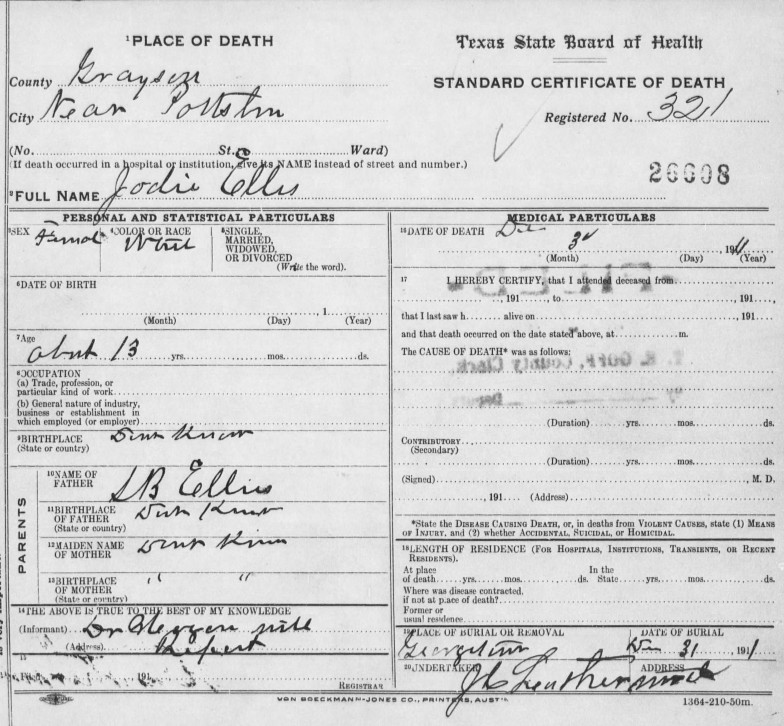 ¹PLACE OF DEATH
Texas State Board of Health
County Grayson
STANDARD CERTIFICATE OF DEATH
City Near Pottsboro
Registered No. 321
(No. St.; Ward)
(If death occurred in a hospital or institution, give its NAME instead of street and number.)
26608
²FULL NAME Jodie Ellis
PERSONAL AND STATISTICAL PARTICULARS
³SEX Femal
⁴COLOR OR RACE White
⁵SINGLE,
MARRIED,
WIDOWED,
OR DIVORCED
(Write the word).
⁶DATE OF BIRTH
, 1
(Month) (Day) (Year)
⁷Age
about 13 yrs. mos. ds.
⁸OCCUPATION
(a) Trade, profession, or
particular kind of work
(b) General nature of industry,
business or establishment in
which employed (or employer)
⁹BIRTHPLACE Dont Know
(State or country)
PARENTS
¹⁰NAME OF
FATHER
Ellis
¹¹BIRTHPLACE
OF FATHER Dont Know
(State or country)
¹²MAIDEN NAME
OF MOTHER Dont Know
¹³BIRTHPLACE
OF MOTHER " "
(State or country)
¹⁴THE ABOVE IS TRUE TO THE BEST OF MY KNOWLEDGE
(Informant) Dr will
(Address) Report
15
Filed 191
REGISTRAR
MEDICAL PARTICULARS
¹⁶DATE OF DEATH
3 1911
(Month) (Day) (Year)
17 I HEREBY CERTIFY, that I attended deceased from
, 191 , to , 191 ,
that I last saw h alive on , 191
and that death occurred on the date stated above, at m.
The CAUSE OF DEATH* was as follows:
FILED
GOFF, County Clerk
By Deputy
(Duration) yrs. mos. ds.
CONTRIBUTORY
(Secondary)
(Duration) yrs. mos. ds.
(Signed) , M. D.
, 191 (Address)
*State the DISEASE CAUSING DEATH, or, in deaths from VIOLENT CAUSES, state (1) MEANS
OF INJURY, and (2) whether ACCIDENTAL, SUICIDAL, or HOMICIDAL.
¹⁸LENGTH OF RESIDENCE (FOR HOSPITALS, INSTITUTIONS, TRANSIENTS, OR RECENT
RESIDENTS).
At place In the
of death yrs. mos. ds. State yrs. mos. ds.
Where was disease contracted,
if not at place of death?
Former or
usual residence
¹⁹PLACE OF BURIAL OR REMOVAL DATE OF BURIAL
Georgetown 31 1911
²⁰UNDERTAKER ADDRESS
VON BOECKMANN-JONES CO., PRINTERS, AUSTIN
1364-210-50m.